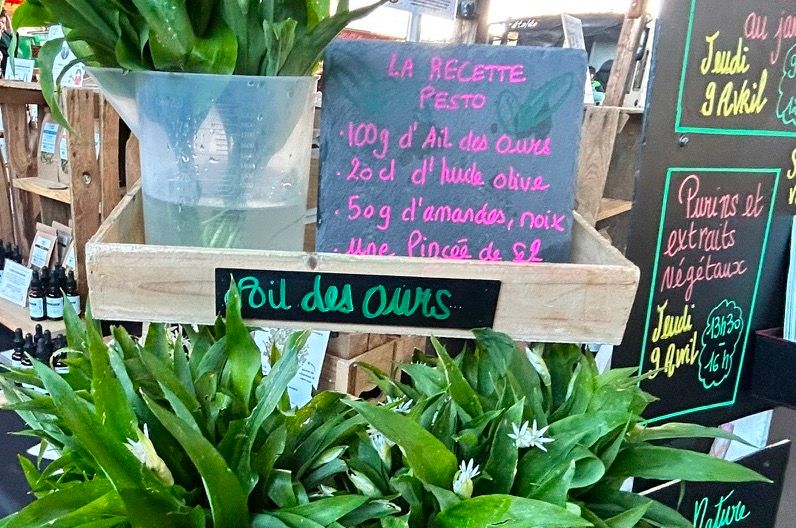 LA RECETTE
PESTO
• 100g d'Ail des ours
• 20cl d'huile olive
• 50g d'amandes, noix
• Une Pincée de sel
Ail des ours
au
Jeudi
9 Avril
Purins et
extraits
végétaux
Jeudi
9 Avril
13h30
16h
Nature